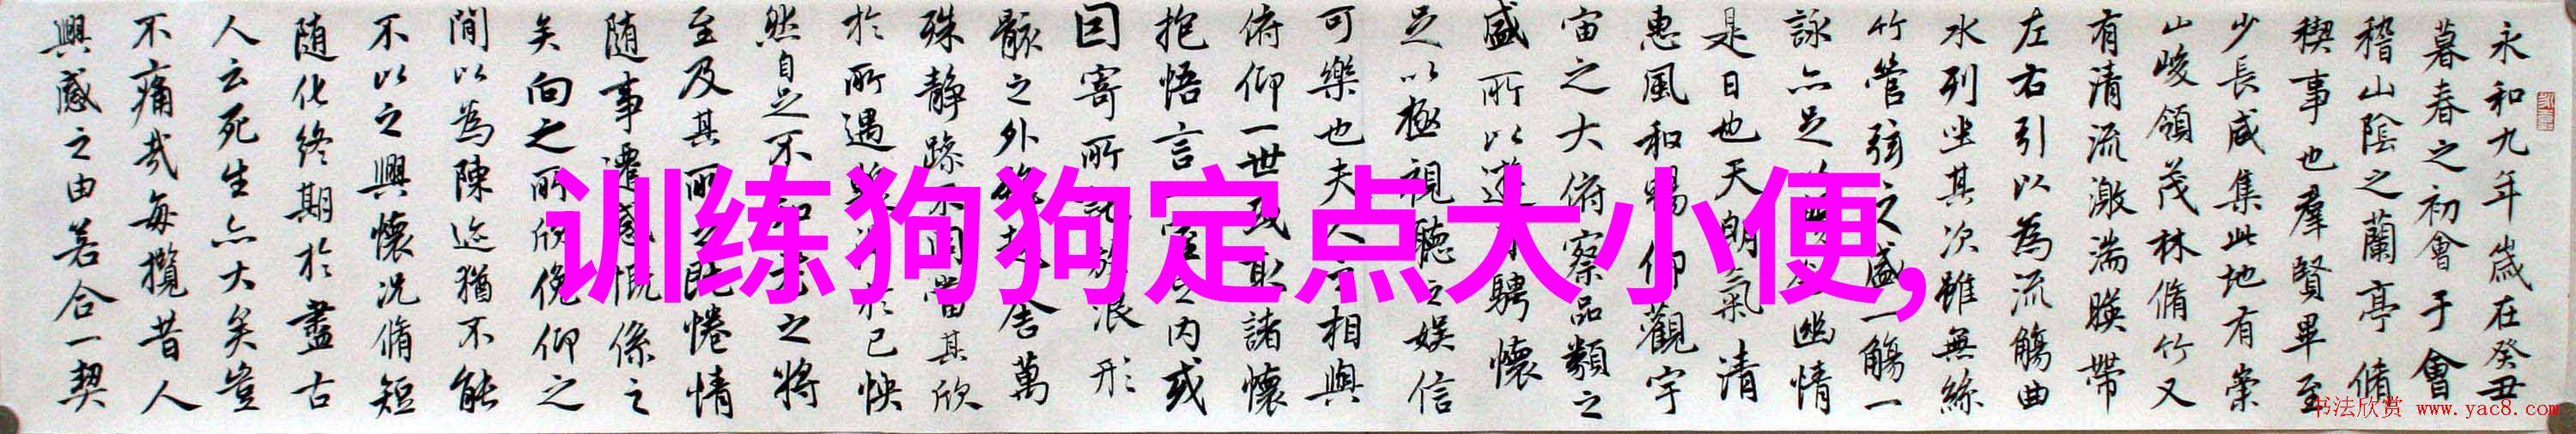 永和九年歲在癸丑
暮春之初會于會
稽山陰之蘭亭脩
稧事也羣賢畢至
少長咸集此地有崇
山峻領茂林脩竹又
有清流激湍暎帶
左右引以為流觴曲
水列坐其次雖無絲
竹管弦之盛一觴一
詠亦足幽情
是日也天朗氣清
惠風和暢仰觀宇
宙之大俯察品類之
盛所以遊騁懷
足以極視聽之娛信
可樂也夫人之相與
俯仰一世或取諸懷
抱悟言一室之內或
因寄所託放浪形
骸之外舍萬
殊静躁不同當其欣
於所遇於己怏
然自足不知老之將
至及其所之既惓情
随事遷感慨係之
矣向之所欣俛仰之
閒以為陳迹猶不能
不以之興懷況脩短
随化終期於盡古
人云死生亦大矣豈
不痛哉每攬昔人
興感之由若合一契
训练狗狗定点大小便,
书法欣赏 www.yac8.com